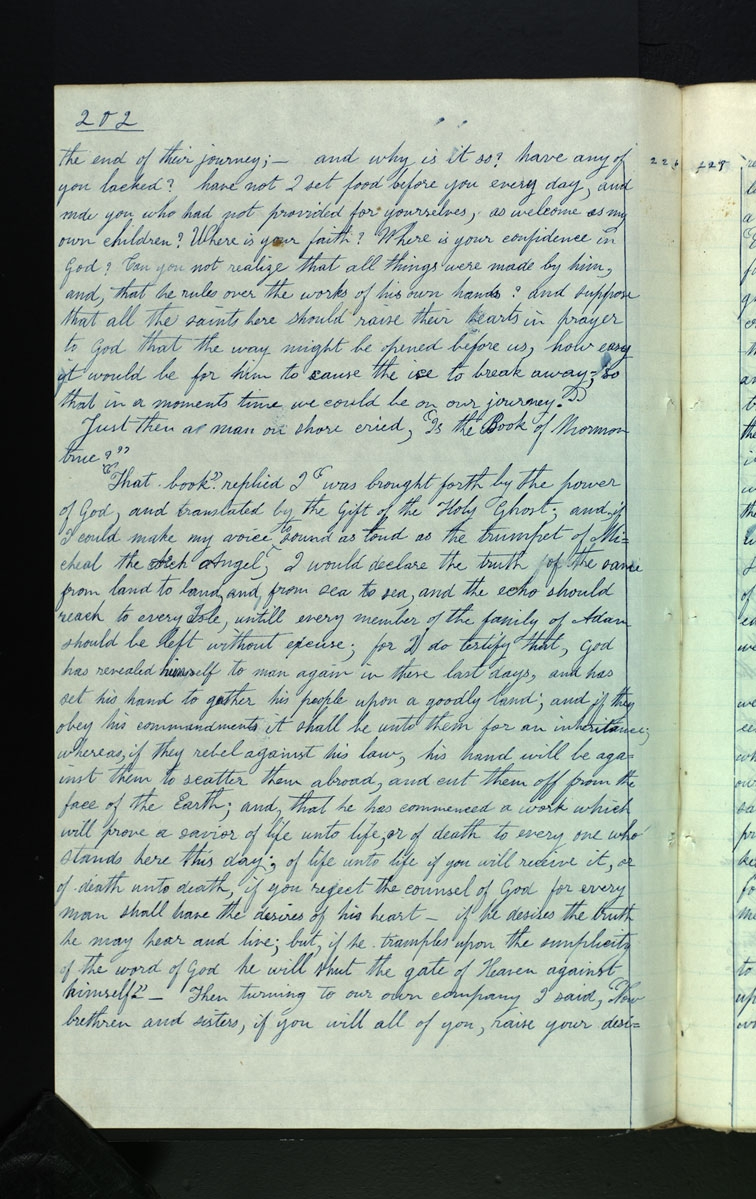 202
the end of their journey; — and why is it so? have any of
you lacked? have not I set food before you every day, and
made you who had not provided for yourselves, as welcome as my
own children? Where is your faith? Where is your confidence in
God? Can you not realize that all things were made by him,
and, that he rules over the works of his own hands? and suppose
that all the saints here should raise their hearts in prayer
to God that the way might be opened before us, how easy
it would be for him to cause the ice to break away; so
that in a moments time we could be on our journey."
Just then a man on shore cried, "Is the Book of Mormon
true?"
"That book" replied I "was brought forth by the power
of God, and translated by the Gift of the Holy Ghost; and, if
I could make my voice to sound as loud as the trumpet of Mi=
cheal the Arch Angel, I would declare the truth of the same
from land to land, and from sea to sea, and the echo should
reach to every Isle, untill every member of the family of Adam
should be left without excuse; for I do testify that, God
has revealed himself to man again in these last days, and has
set his hand to gather his people upon a goodly land; and if they
obey his commandments it shall be unto them for an inheritance;
whereas, if they rebel against his law, his hand will be aga=
inst them to scatter them abroad, and cut them off from the
face of the Earth; and, that he has commenced a work which
will prove a savior of life unto life, or of death to every one who
stands here this day; of life unto life if you will receive it, or
of death unto death, if you reject the counsel of God for every
man shall have the desires of his heart — if he desires the truth
he may hear and live; but, if he tramples upon the simplicity
of the word of God he will shut the gate of Heaven against
himself." — Then turning to our own company I said, "Now
brethren and sisters, if you will all of you, raise your desi=
226 229